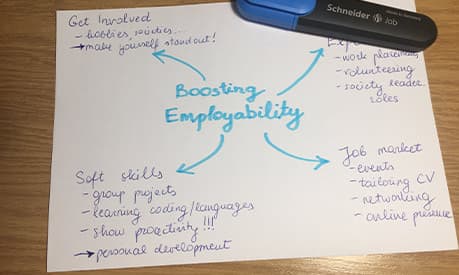 Get Involved
- hobbies, societies...
→ make yourself stand out!
Schneider
Job
- work placement
- volunteering
- society leader
roles
Boosting
Employability
Soft skills
- group projects
- learning coding/languages
- show proactivity!!!
→ personal development
Job market
- events
- tailoring CV
- networking
- online presence